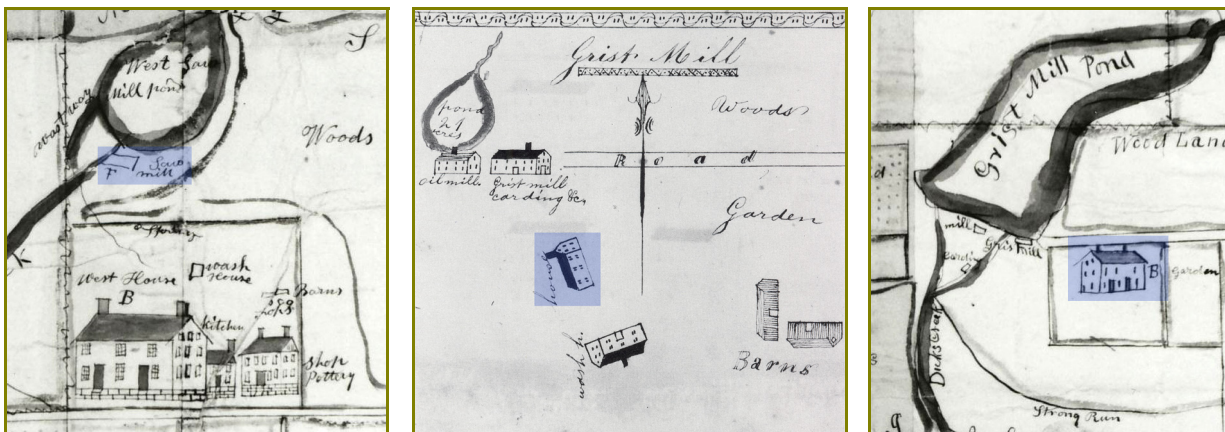 S
West Saw
Mill pond
wast way
Woods
Saw
mill
F
K
a Spring
West House
B
wash
House
Barns
Shops
Kitchen
Shop
Pottery
Grist Mill
pond
21
acres
Woods
Road
oil mill
Grist mill
carding &c
Garden
house
wash h.
Barns
Grist Mill Pond
Wood Lan
d
mill
Gris mill
cardin
B
garden
Dicks Creek
Strong Run
g